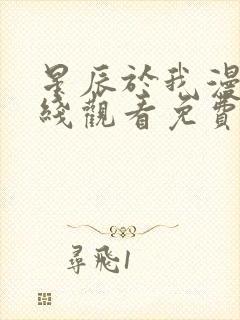 星辰於我漫
綫觀看免費
尋飛1